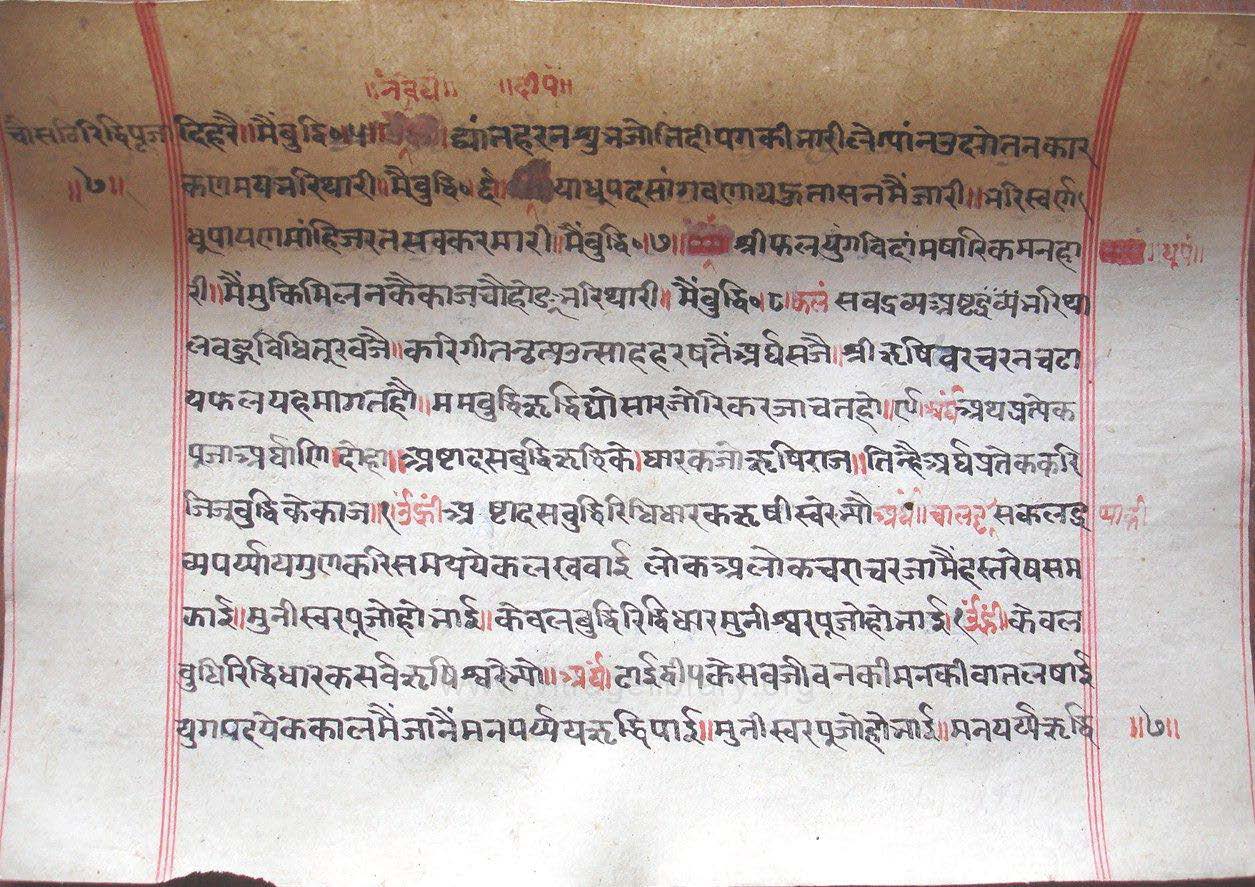 ॥नैवेद्यं॥ ॥दीपं॥
चौसठिरिद्धिपूजा
दिहरै॥मैंबुद्धि०५॥ ध्वांतहरनश्रुतजोतिदीपगकीभारीलेग्यांनउदगेतनकार
॥७॥
कणमयभरिथारी॥मैंबुद्धि०६॥ याधूपदसांगवणायहुतासनमैंजारी॥भरिस्वर्ण
धूपायणमांहिजरतसबकरमारी॥मैंबुद्धि०।७॥ श्रीफलयुगविदांमषारिकमनहा
॥धूपं॥
री॥मैंमुक्तिमिलनकैकाजचौहोङूभरिथारी॥मैंबुद्धि०।८।फलं सबद्रव्यअष्टद्रव्यंभरिथा
लवहुविधितूरबजै॥करिगीतनृत्यउत्साहहरषतैंअर्घसजै॥श्रीऋषिवरचरनचढा
यफलयहमागतहौ॥ममबुद्धिऋद्धिद्योसारजोरिकरजाचतहो॥९॥अर्घंअथप्रत्येक
पूजाअर्घाणि।दोहा॥अष्टादसबुद्धिऋद्धिके।धारकजोऋषिराज॥तिन्हैअर्घप्रतेककरि
जिजूबुद्धिकेकाज॥१॥उँह्रींअष्टादसबुद्धिरिधिधारकऋषीस्वरेभ्यौअर्घं॥चालछंसकलद्र
व्यपर्य्यायगुणकरिसमययेकलखवाई लोकअलोकचराचरजामैंहस्तरेषसम
काई॥मुनीस्वरपूजोहोभाई॥केवलबुद्धिरिद्धिधारमुनीश्वरपूजोहोभाई।१उँह्रींकेवल
बुधिरिद्धिधारकसर्वऋषिश्वरेभ्यो॥अर्घं॥ढाईद्वीपकेसबजीवनकीमनकीवातलषाई
युगपदयेककालमैंजानैंमनपर्य्ययऋद्धिपाई॥मुनीस्वरपूजोहोभाई॥मनपर्य्यऋद्धि
॥७॥